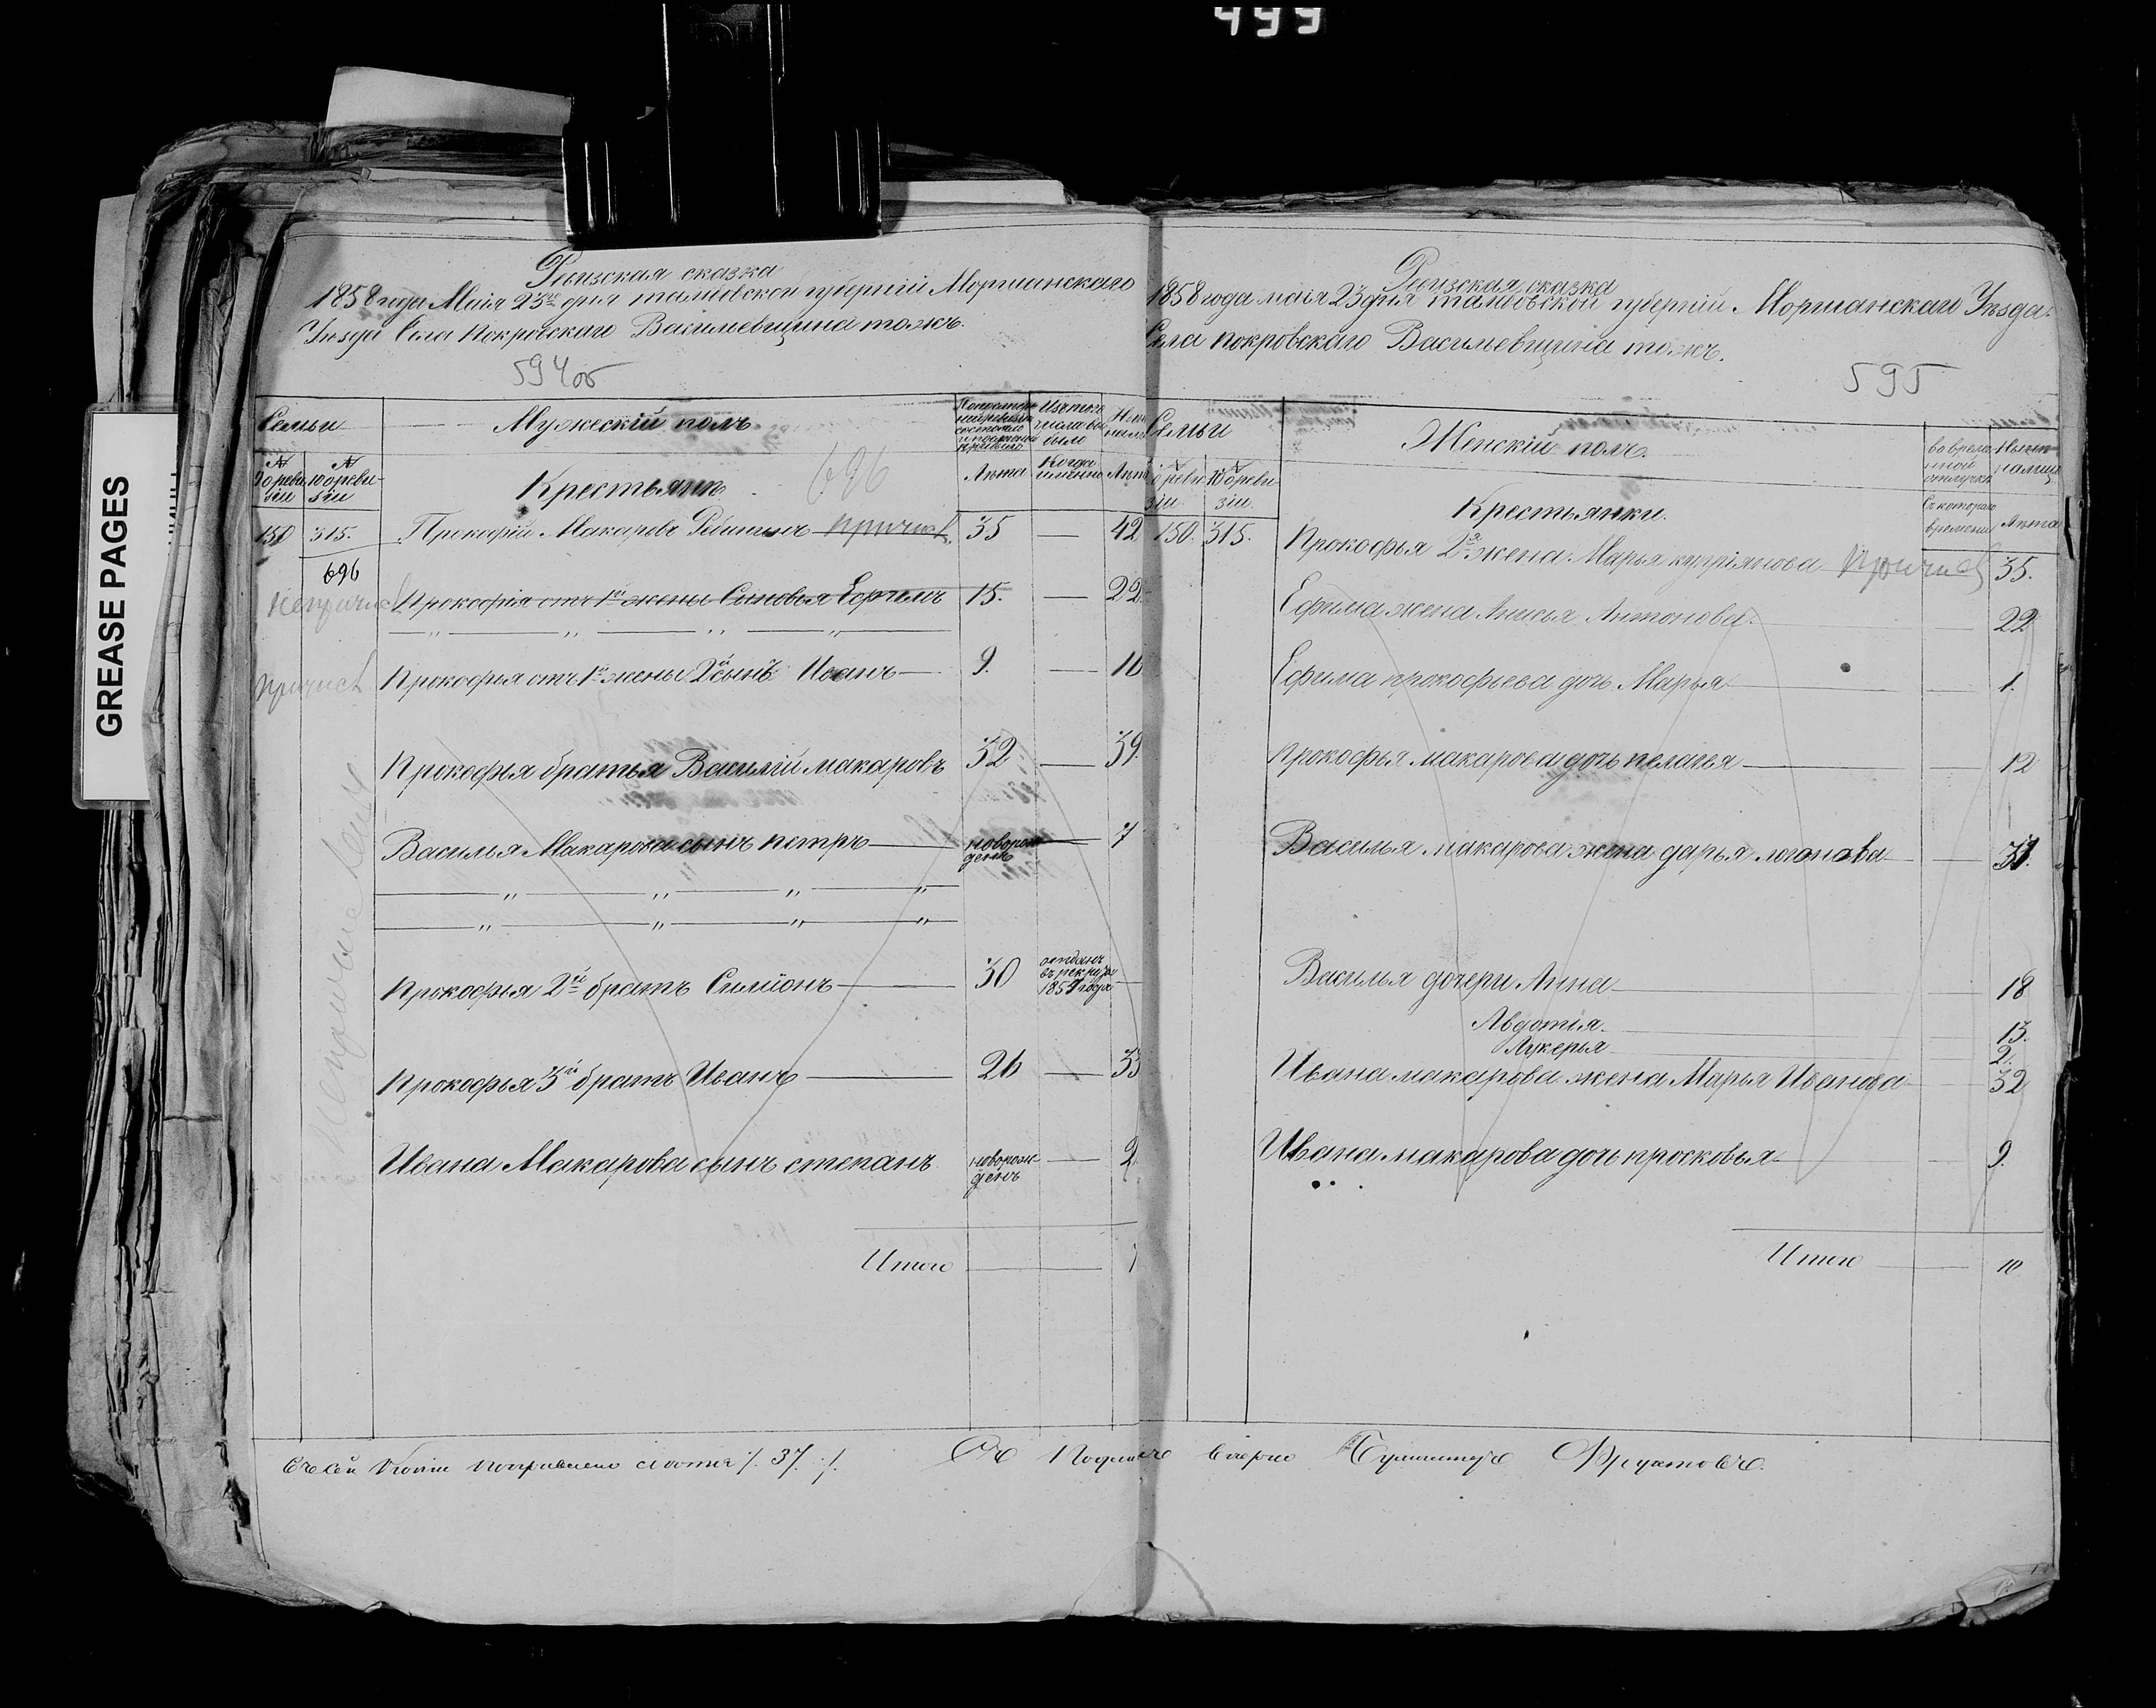 499
GREASE PAGES
Ревизская сказка
1858 года Маія 23го дня тамбовской губерніи Моршанскаго
Уезда Села покровскаго Васильевщина тожъ.
594об
Семьи
Мужескій полъ
№ 9 ревизіи
№ 10 ревизіи
Крестьяне
696
Лѣта
Когда именно
Лѣта
150 315. Прокофій Макаровъ причисл. 35 — 42
696
непричисл Прокофія отъ 1й жены Сыновья Ефимъ 15. — 22
причисл Прокофья отъ 1й жены 2й сынъ Иванъ 9. — 16
Прокофья братья Василій макаровъ 32 — 39.
Василья Макарова сынъ петръ новорожденъ — 7
Прокофья 2й братъ Симионъ 30 отданъ въ рекруты года
Прокофья 3й братъ Иванъ 26 — 33
Ивана Макарова сынъ степанъ новорожденъ — 2
Итого
Ревизская сказка
1858 года маія 23 дня тамбовской губерніи Моршанскаго Уѣзда
Села покровскаго Васильевщина тожъ.
595
Семьи
Женскій полъ.
во временной отлучкѣ
Нынѣ на лицо
ревизіи
10 ревизіи.
Крестьянки.
Съ котораго времени
Лѣта
150. 315. Прокофья 2я жена Марья купріянова причисл 35.
Ефима жена Анисья Антонова 22
Ефима прокофьева дочь Марья 1.
прокофья макарова дочь пелагья 12
Василья макарова жена дарья логонова
Василья дочери Анна 18
Авдотія 13.
Лукерья 2.
Ивана макарова жена Марья Иванова 32
Ивана макарова дочь просковья 9.
Итого 10
37.
Фруктовъ.